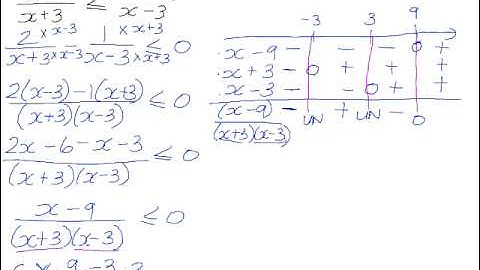 x+3 ≤ x-3
2 ×x-3 / x+3 ×x-3 - 1 ×x+3 / x-3 ×x+3 ≤ 0
2(x-3)-1(x+3) / (x+3)(x-3) ≤ 0
2x-6-x-3 / (x+3)(x-3) ≤ 0
x-9 / (x+3)(x-3) ≤ 0
-3 3 9
x-9 - - - 0 +
x+3 - 0 + + +
x-3 - - 0 + +
(x-9) / (x+3)(x-3) - UN + UN - 0